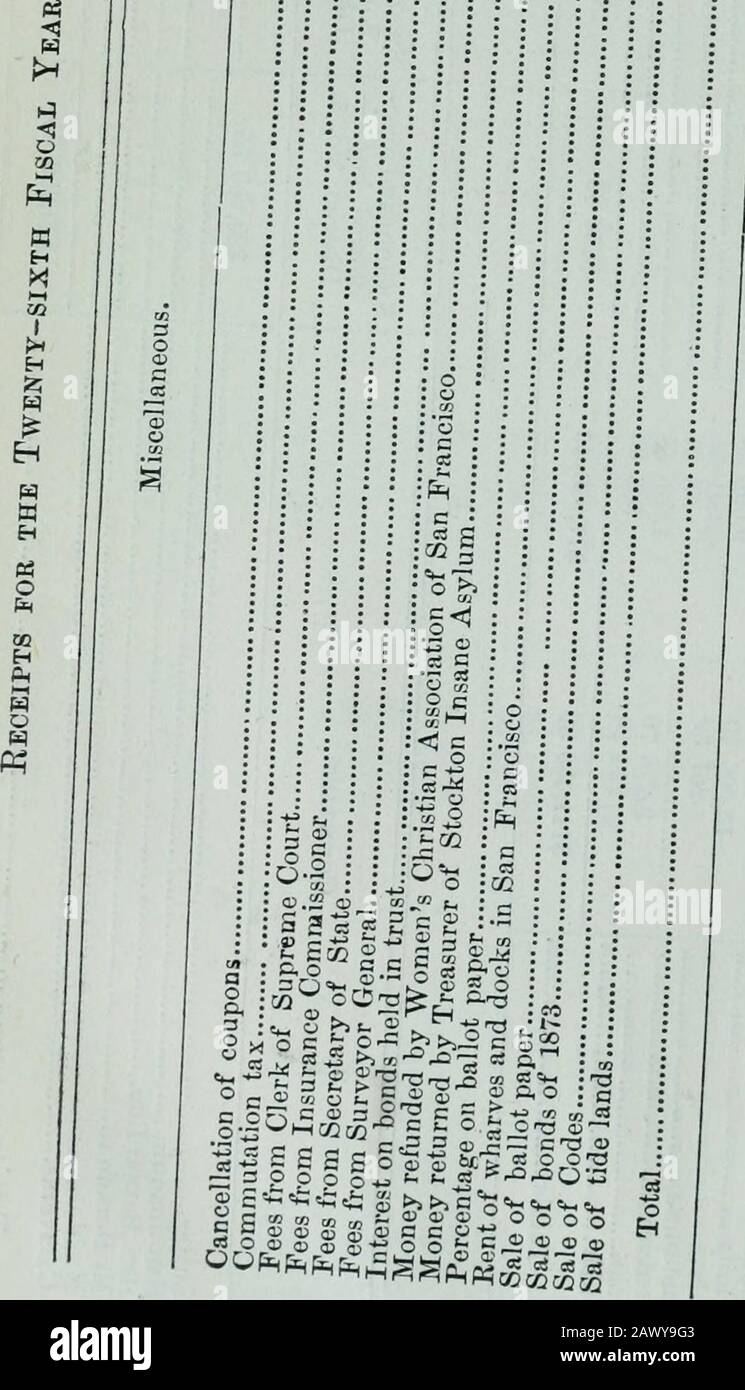 RECEIPTS FOR THE TWENTY-SIXTH FISCAL YEAR
Miscellaneous.
Cancellation of coupons
Commutation tax
Fees from Clerk of Supreme Court
Fees from Insurance Commissioner
Fees from Secretary of State
Fees from Surveyor General
Interest on bonds held in trust
Money refunded by Women's Christian Association of San Francisco
Money returned by Treasurer of Stockton Insane Asylum
Percentage on ballot paper
Rent of wharves and docks in San Francisco
Sale of ballot paper
Sale of bonds of 1873
Sale of Codes
Sale of tide lands
Total
alamy
Image ID: 2AWY9G3
www.alamy.com